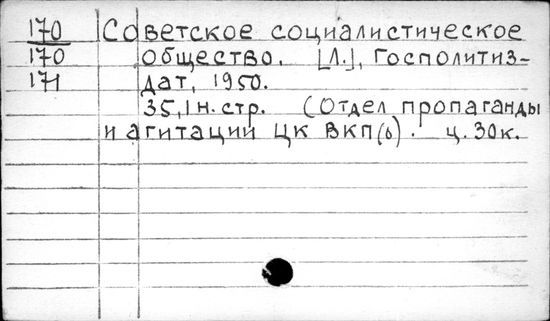 170 Советское социалистическое
170 общество. [Л.], Госполитиз-
171 дат, 1950.
35, 1 н. стр. (Отдел пропаганды
и агитации ЦК ВКП(б). ц. 30к.